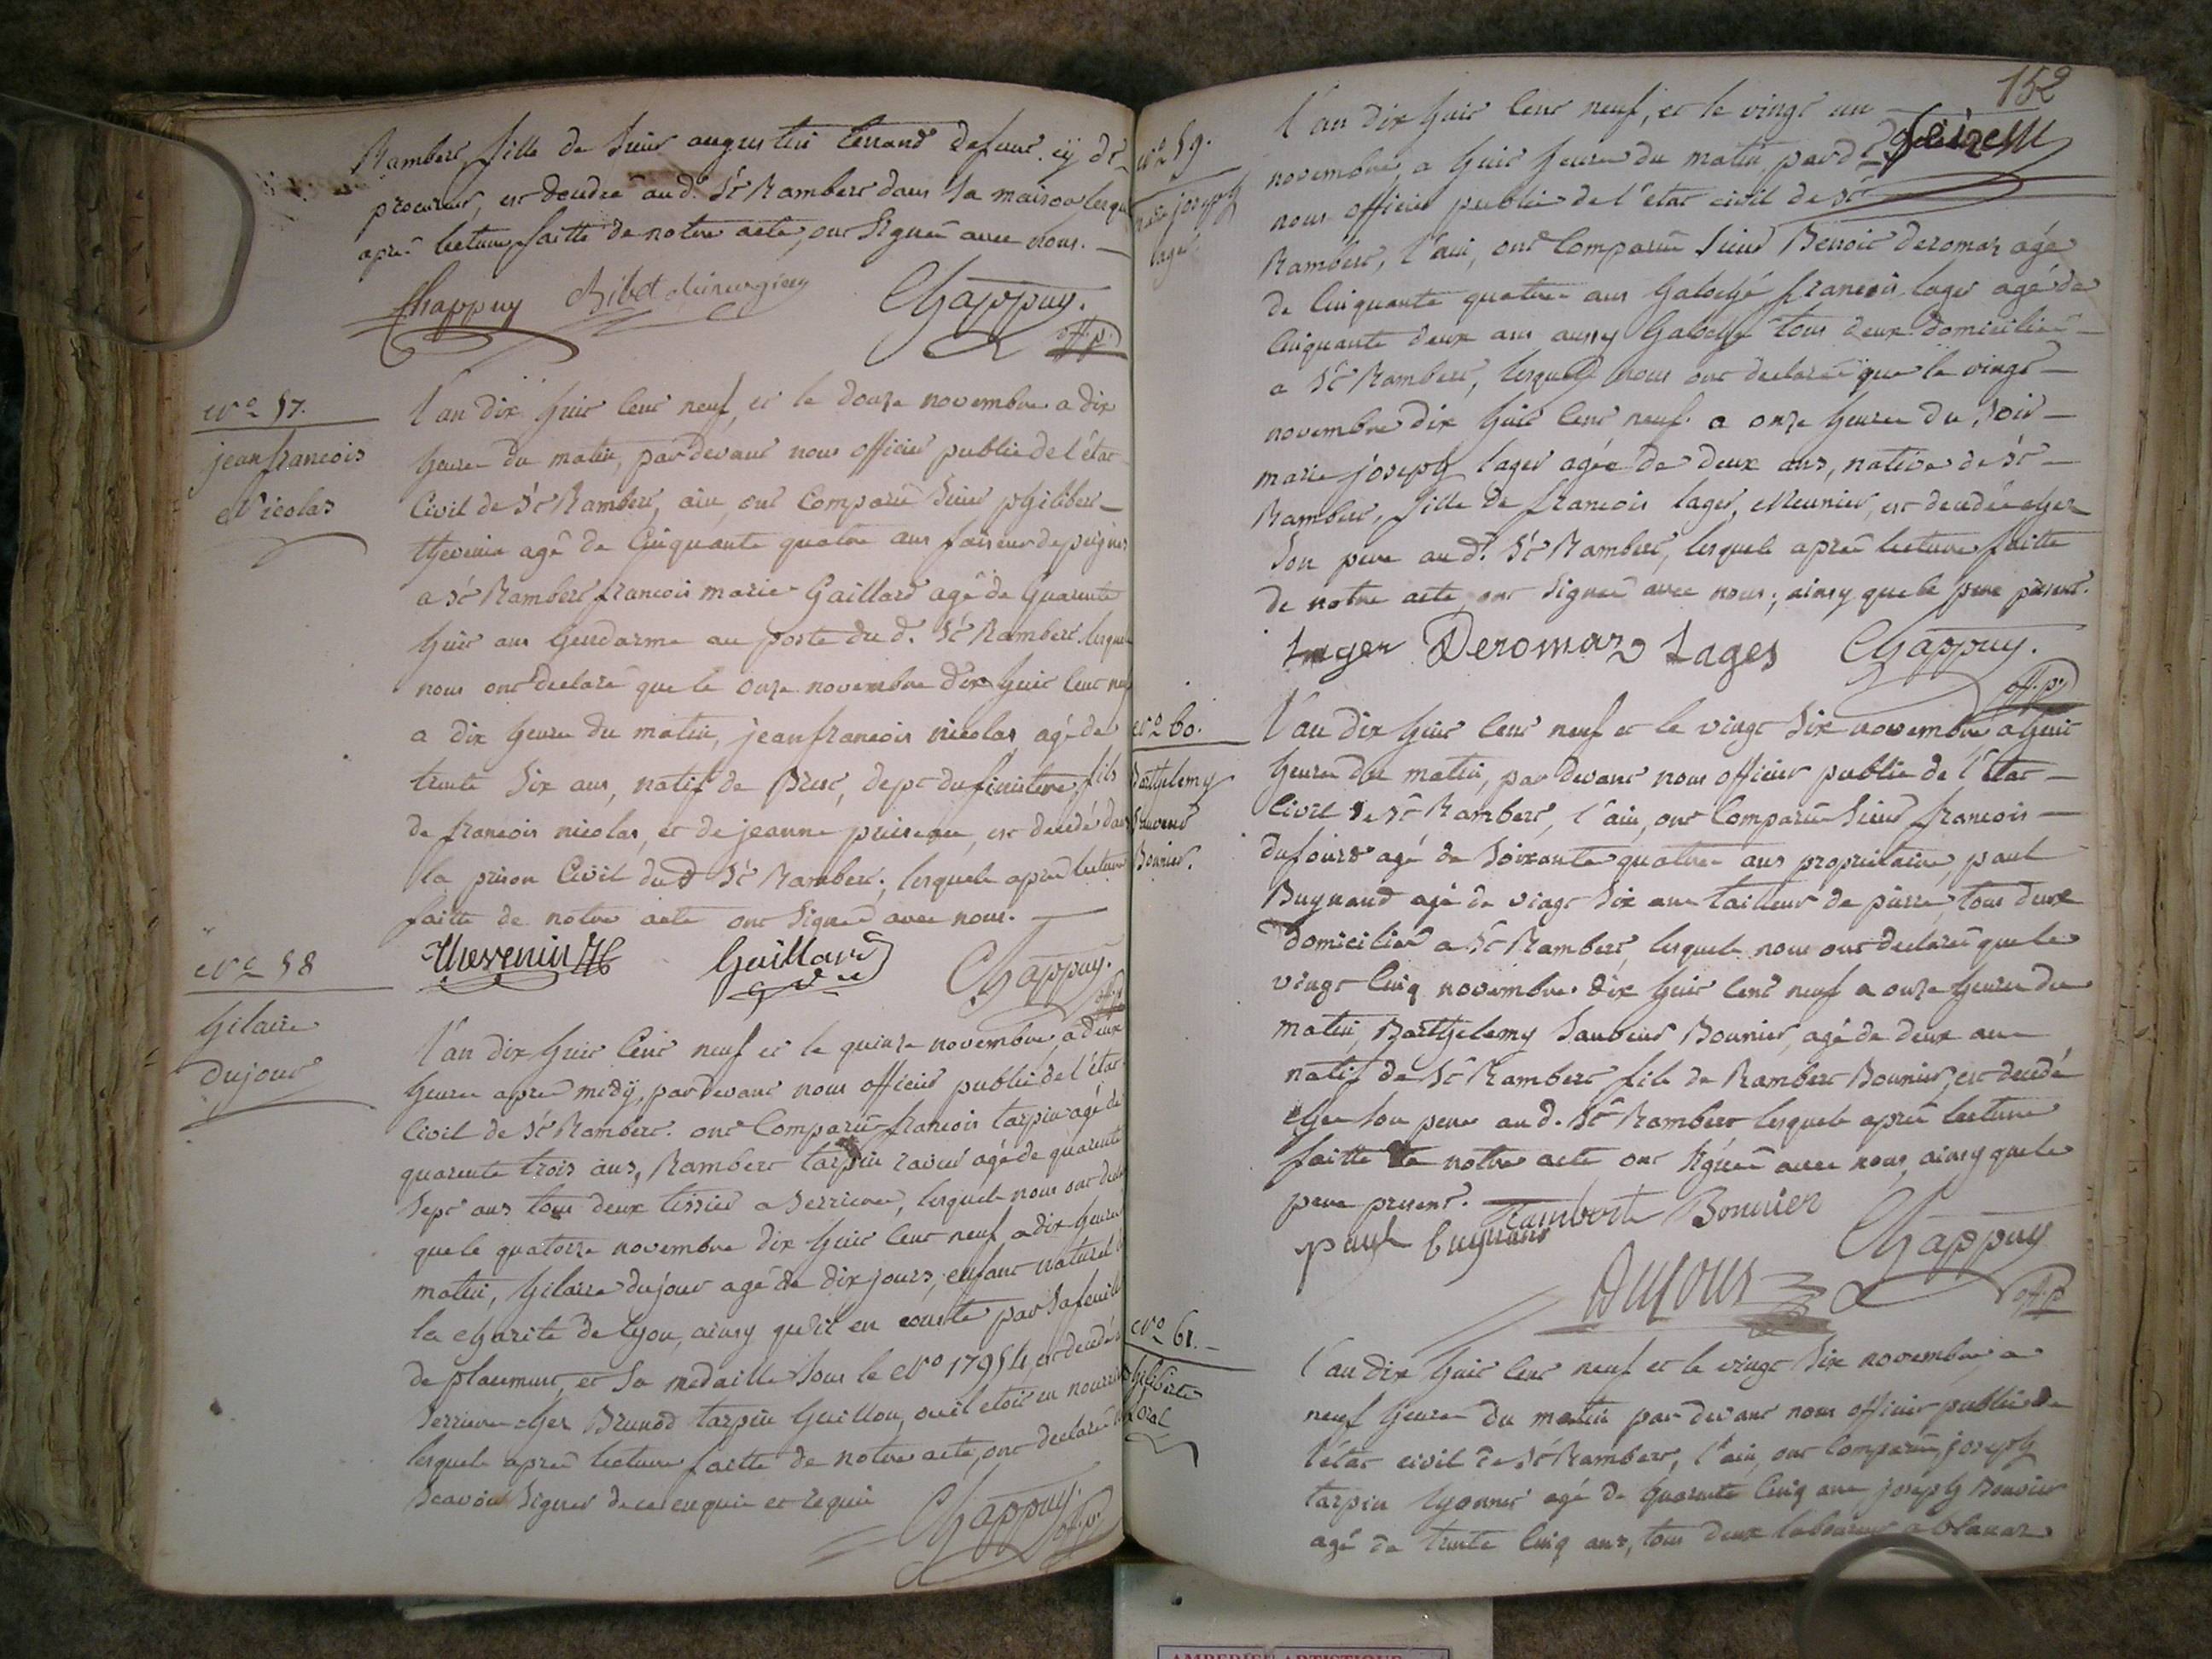 Rambert, fille de Sieur augustin tenand defunt. ÿ dt
procureur, est decedée au d. St Rambert dans sa maison, lesquels
après lecture faitte de notre acte, ont signés avec nous.
Chappuy Ribet chirurgien Chappuy.
off. p.
No 57.
jean francois
Nicolas
L'an dix huit cent neuf, et le douze novembre a dix
heures du matin, pardevant nous officier public de l'état
Civil de St Rambert, ain, ont comparu Sieur philibert
thevenin agé de Cinquante quatre ans faiseur de peignes
a St Rambert francois marie Gaillard agé de quarante
huit ans Gendarme au poste du d. St Rambert lesquels
nous ont declaré que le onze novembre dix huit cent neuf
a dix heures du matin, jean francois nicolas, agé de
trente six ans, natif de Brest, dept du finistere, fils
de francois nicolas, et de jeanne est decedé dans
la prison Civil du d St Rambert; lesquels après lecture
faitte de notre acte ont signés avec nous.
Thevenin Gaillard Chappuy.
off. p.
No 58
hilaire
Dujour
L'an dix huit Cent neuf et le quinze novembre, a deux
heures après midÿ, pardevant nous officier public de l'état
Civil de St Rambert. ont Comparus francois tarpin agé de
quarante trois ans, Rambert tarpin agé de quarante
sept ans tous deux tissier a Serrieres, lesquels nous ont
que le quatorze novembre dix huit cent neuf a dix heures
matin, hilaire dujour agé de dix jours, enfant naturel de
la charité de Lyon, ainsy qu'il en conste par sa feuille
de placement, et sa medaille sous le No 17954, est decedé
Serrieres chez Brunod tarpin Guillon, ou il etoit en nourrice
lesquels après lecture faitte de notre acte, ont declaré
scavoir signer de ce enquis et requis
Chappuy.
off. p.
152
No 59.
marie joseph
lager
L'an dix huit Cent neuf, et le vingt un
novembre, a huit heures du matin, pard
nous officier public de l'état civil de St
Rambert, l'ain, ont Comparus Sieur Benoit deromas agé
de Cinquante quatre ans francois lager agé de
Cinquante deux ans aussy tous deux domiciliés
a St Rambert, lesquels nous ont declarés que le vingt
novembre dix huit cent neuf. a onze heures du soir
marie joseph lager agée de deux ans, native de St
Rambert, fille de francois lager, Meunier, est decedée chez
son pere au d. St Rambert, lesquels après lecture faitte
de notre acte ont signés avec nous; ainsy que le pere présent.
Lager Deromaz Lages Chappuy.
off. p.
No 60.
Barthelemy
Sauveur
Bonnier.
L'an dix huit Cent neuf et le vingt six novembre a huit
heures du matin, par devant nous officier public de l'État
civil de St Rambert, l'ain, ont Comparus Sieur francois
dufour agé de soixante quatre ans proprietaire, paul
Buynand agé de vingt six ans tailleur de pierre, tous deux
domiciliés a St Rambert, lesquels nous ont declarés que le
vingt Cinq novembre dix huit cent neuf a onze heures du
matin, Barthelemy Sauveur Bonnier, agé de deux ans
natif de St Rambert fils de Rambert Bonnier, est decedé
chez son pere au d. St Rambert lesquels après lecture
faitte de notre acte ont signés avec nous, ainsy que le
pere present. Rambert Bonnier
paul buynand Chappuy
Dufour off. p
No 61.
philiberte
L'an dix huit cent neuf et le vingt six novembre, a
neuf heures du matin par devant nous officier public de
l'état civil de St Rambert, l'ain, ont Comparus, joseph
tarpin agé de quarante Cinq ans joseph Bouvier
agé de trente Cinq ans, tous deux laboureurs a blanaz